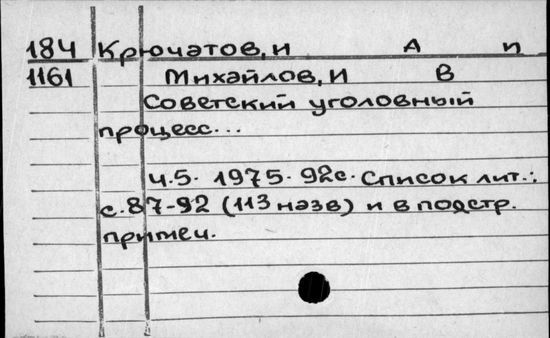 184 Крючатов, и А и
1161 Михайлов, И В
Советский уголовный
процесс...
ч.5. 1975. 92с. Список лит.:
с.87-92 (113 назв) и в подстр.
примеч.